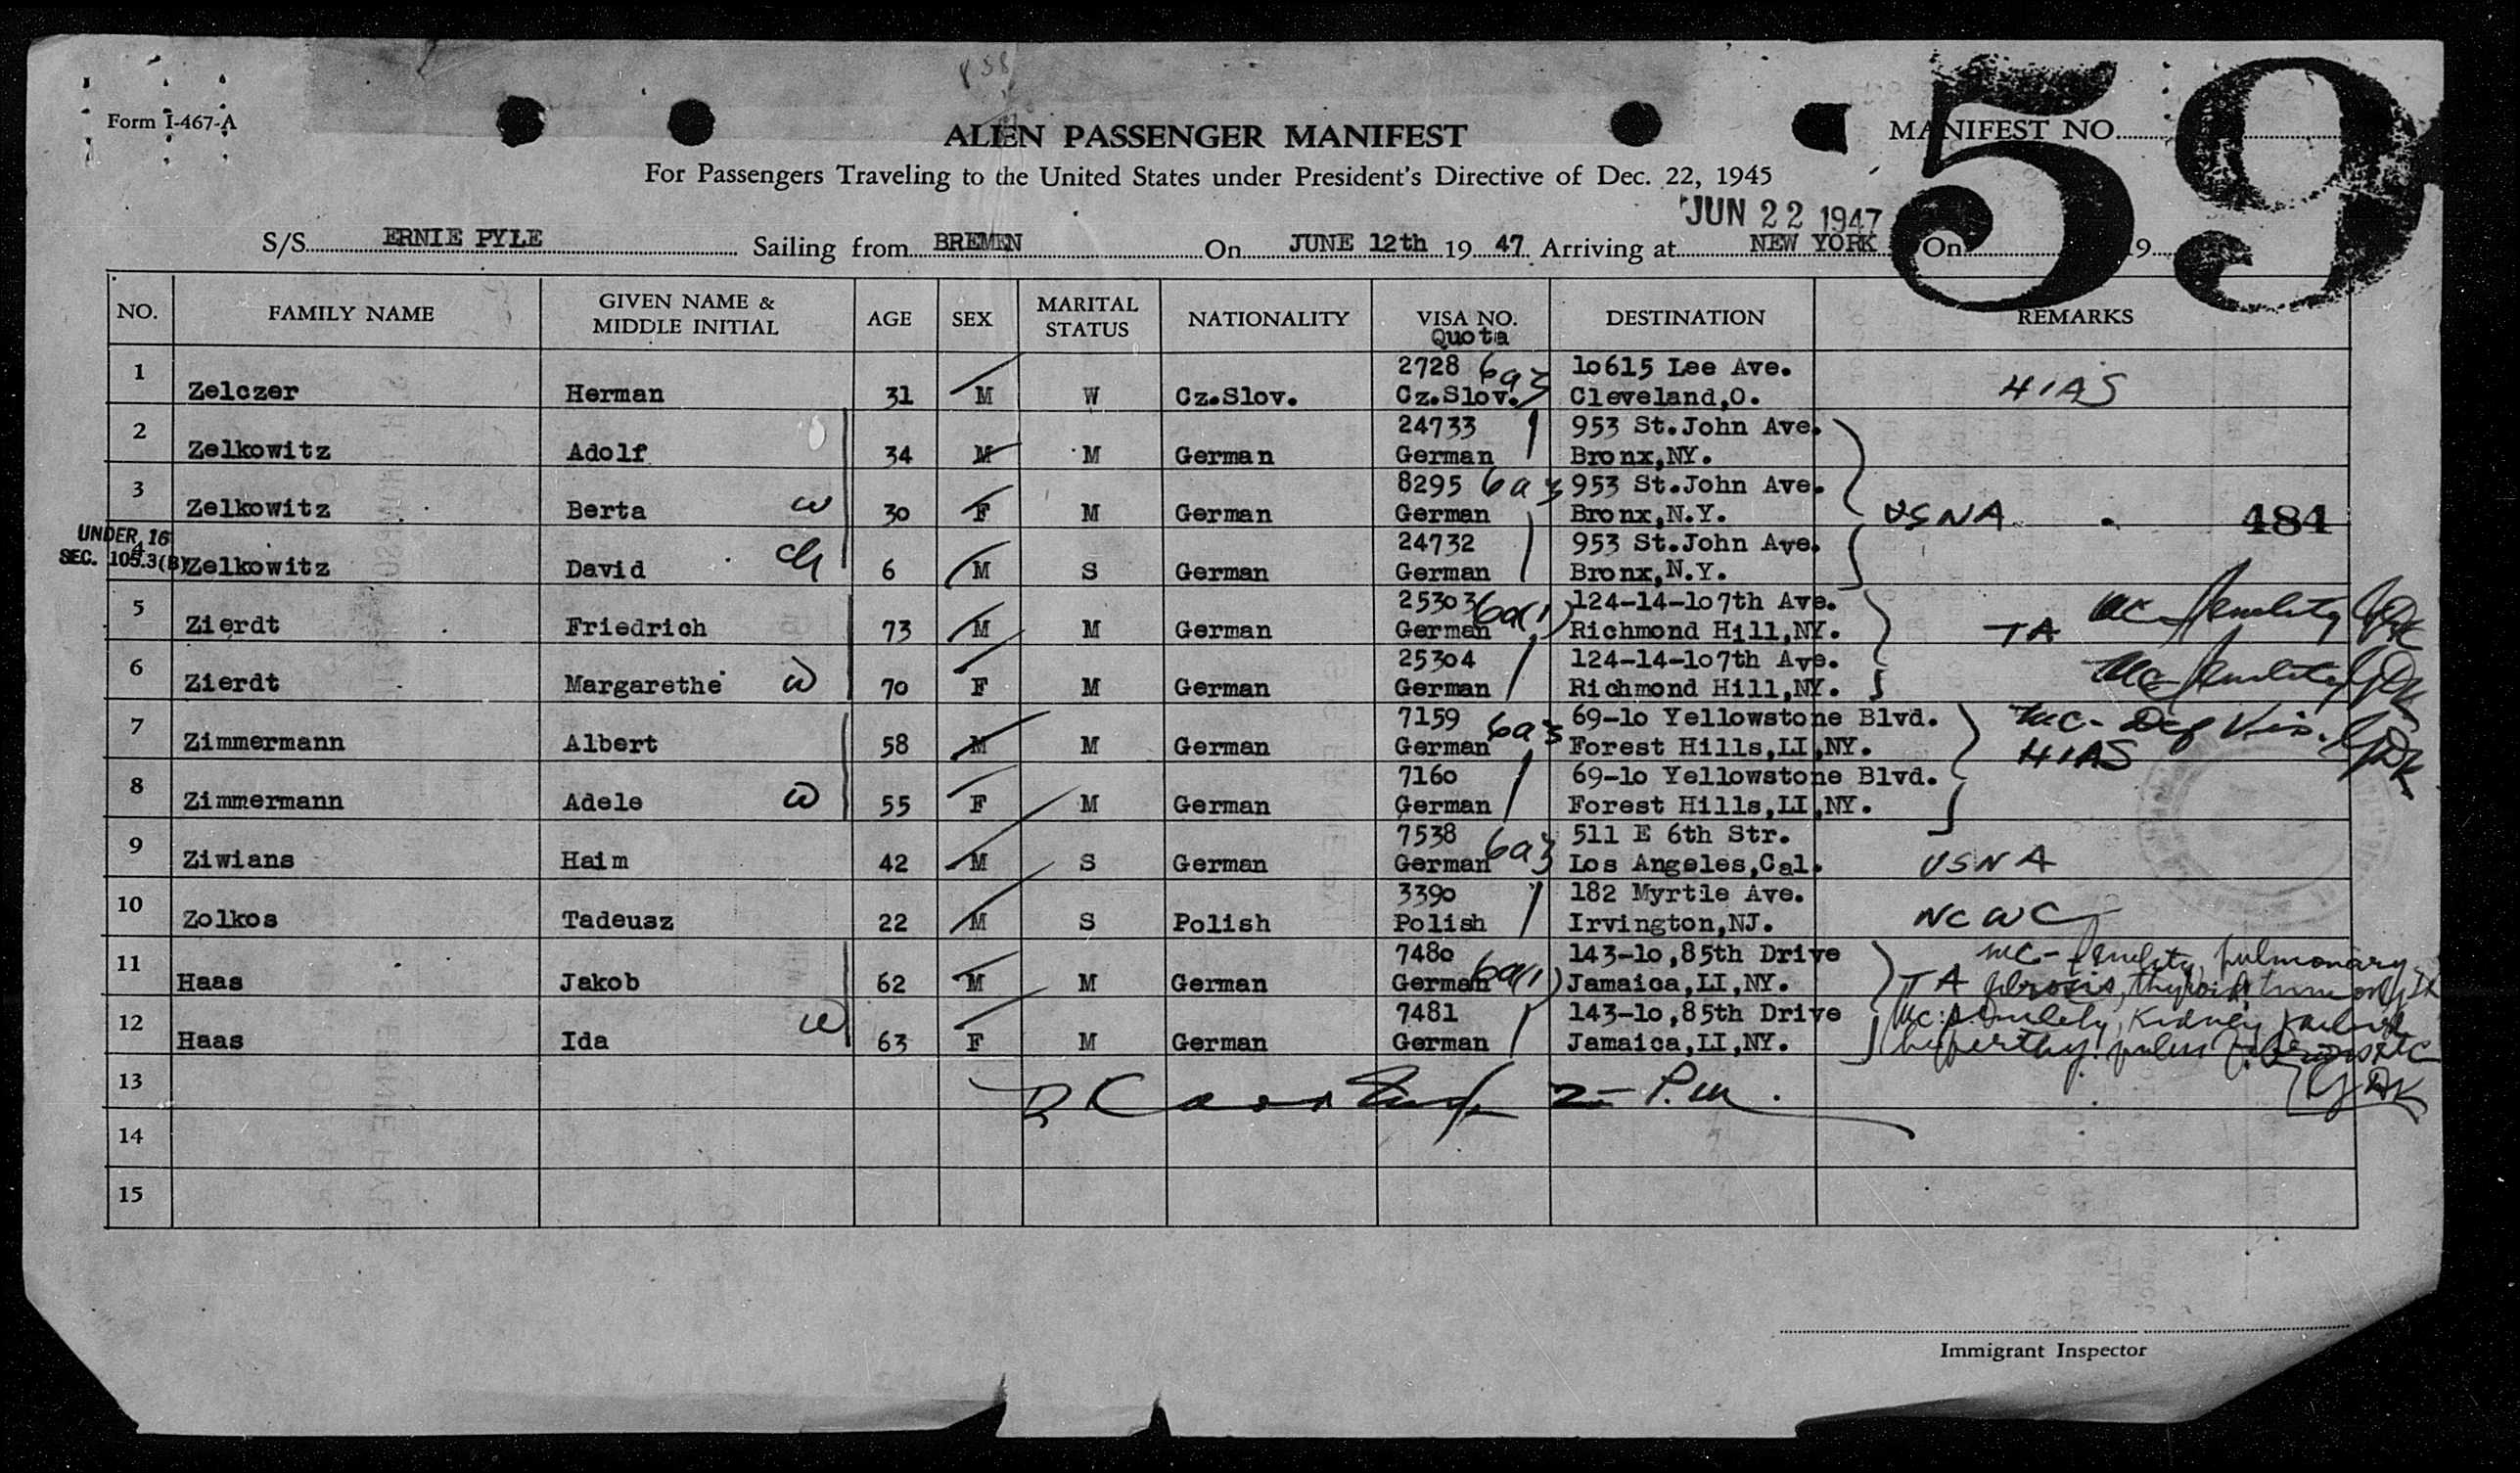 Form I-467-A
ALIEN PASSENGER MANIFEST
MANIFEST NO.
59
For Passengers Traveling to the United States under President's Directive of Dec. 22, 1945
JUN 22 1947
S/S ERNIE PYLE Sailing from BREMEN On JUNE 12th 19 47 Arriving at NEW YORK On 19
NO. FAMILY NAME GIVEN NAME & MIDDLE INITIAL AGE SEX MARITAL STATUS NATIONALITY VISA NO. Quota DESTINATION REMARKS
1 Zelczer Herman 31 M W Cz.Slov. 2728 6a3 Cz.Slov. 10615 Lee Ave. Cleveland,O. HIAS
2 Zelkowitz Adolf 34 M M German 24733 German 953 St.John Ave. Bronx,NY.
3 Zelkowitz Berta W 30 F M German 8295 6a3 German 953 St.John Ave. Bronx,N.Y. USNA 484
UNDER 16
SEC. 105.3(B)
4 Zelkowitz David ch 6 M S German 24732 German 953 St.John Ave. Bronx,N.Y.
5 Zierdt Friedrich 73 M M German 25303 6a(1) German 124-14-107th Ave. Richmond Hill,NY. TA MC- Senility GDK
6 Zierdt Margarethe W 70 F M German 25304 German 124-14-107th Ave. Richmond Hill,NY. MC- Senility GDK
7 Zimmermann Albert 58 M M German 7159 6a3 German 69-10 Yellowstone Blvd. Forest Hills,LI,NY. MC- Def Vis. GDK HIAS
8 Zimmermann Adele W 55 F M German 7160 German 69-10 Yellowstone Blvd. Forest Hills,LI,NY.
9 Ziwians Haim 42 M S German 7538 6a3 German 511 E 6th Str. Los Angeles,Cal. USNA
10 Zolkos Tadeusz 22 M S Polish 3390 Polish 182 Myrtle Ave. Irvington,NJ. NCWC
11 Haas Jakob 62 M M German 7480 6a(1) German 143-10,85th Drive Jamaica,LI,NY. TA MC- Senility, pulmonary fibrosis, thyroid tumor
12 Haas Ida W 63 F M German 7481 German 143-10,85th Drive Jamaica,LI,NY. MC: Senility, Kidney
GDK
13 P.M.
14
15
Immigrant Inspector